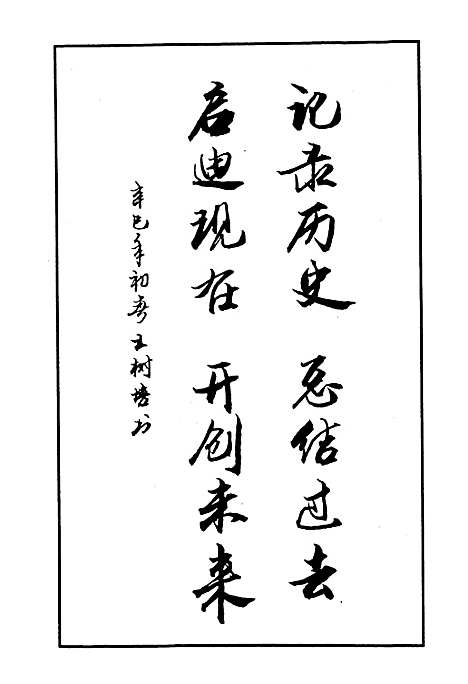 记录历史 总结过去
启迪现在 开创未来
辛巳年初春王树培书